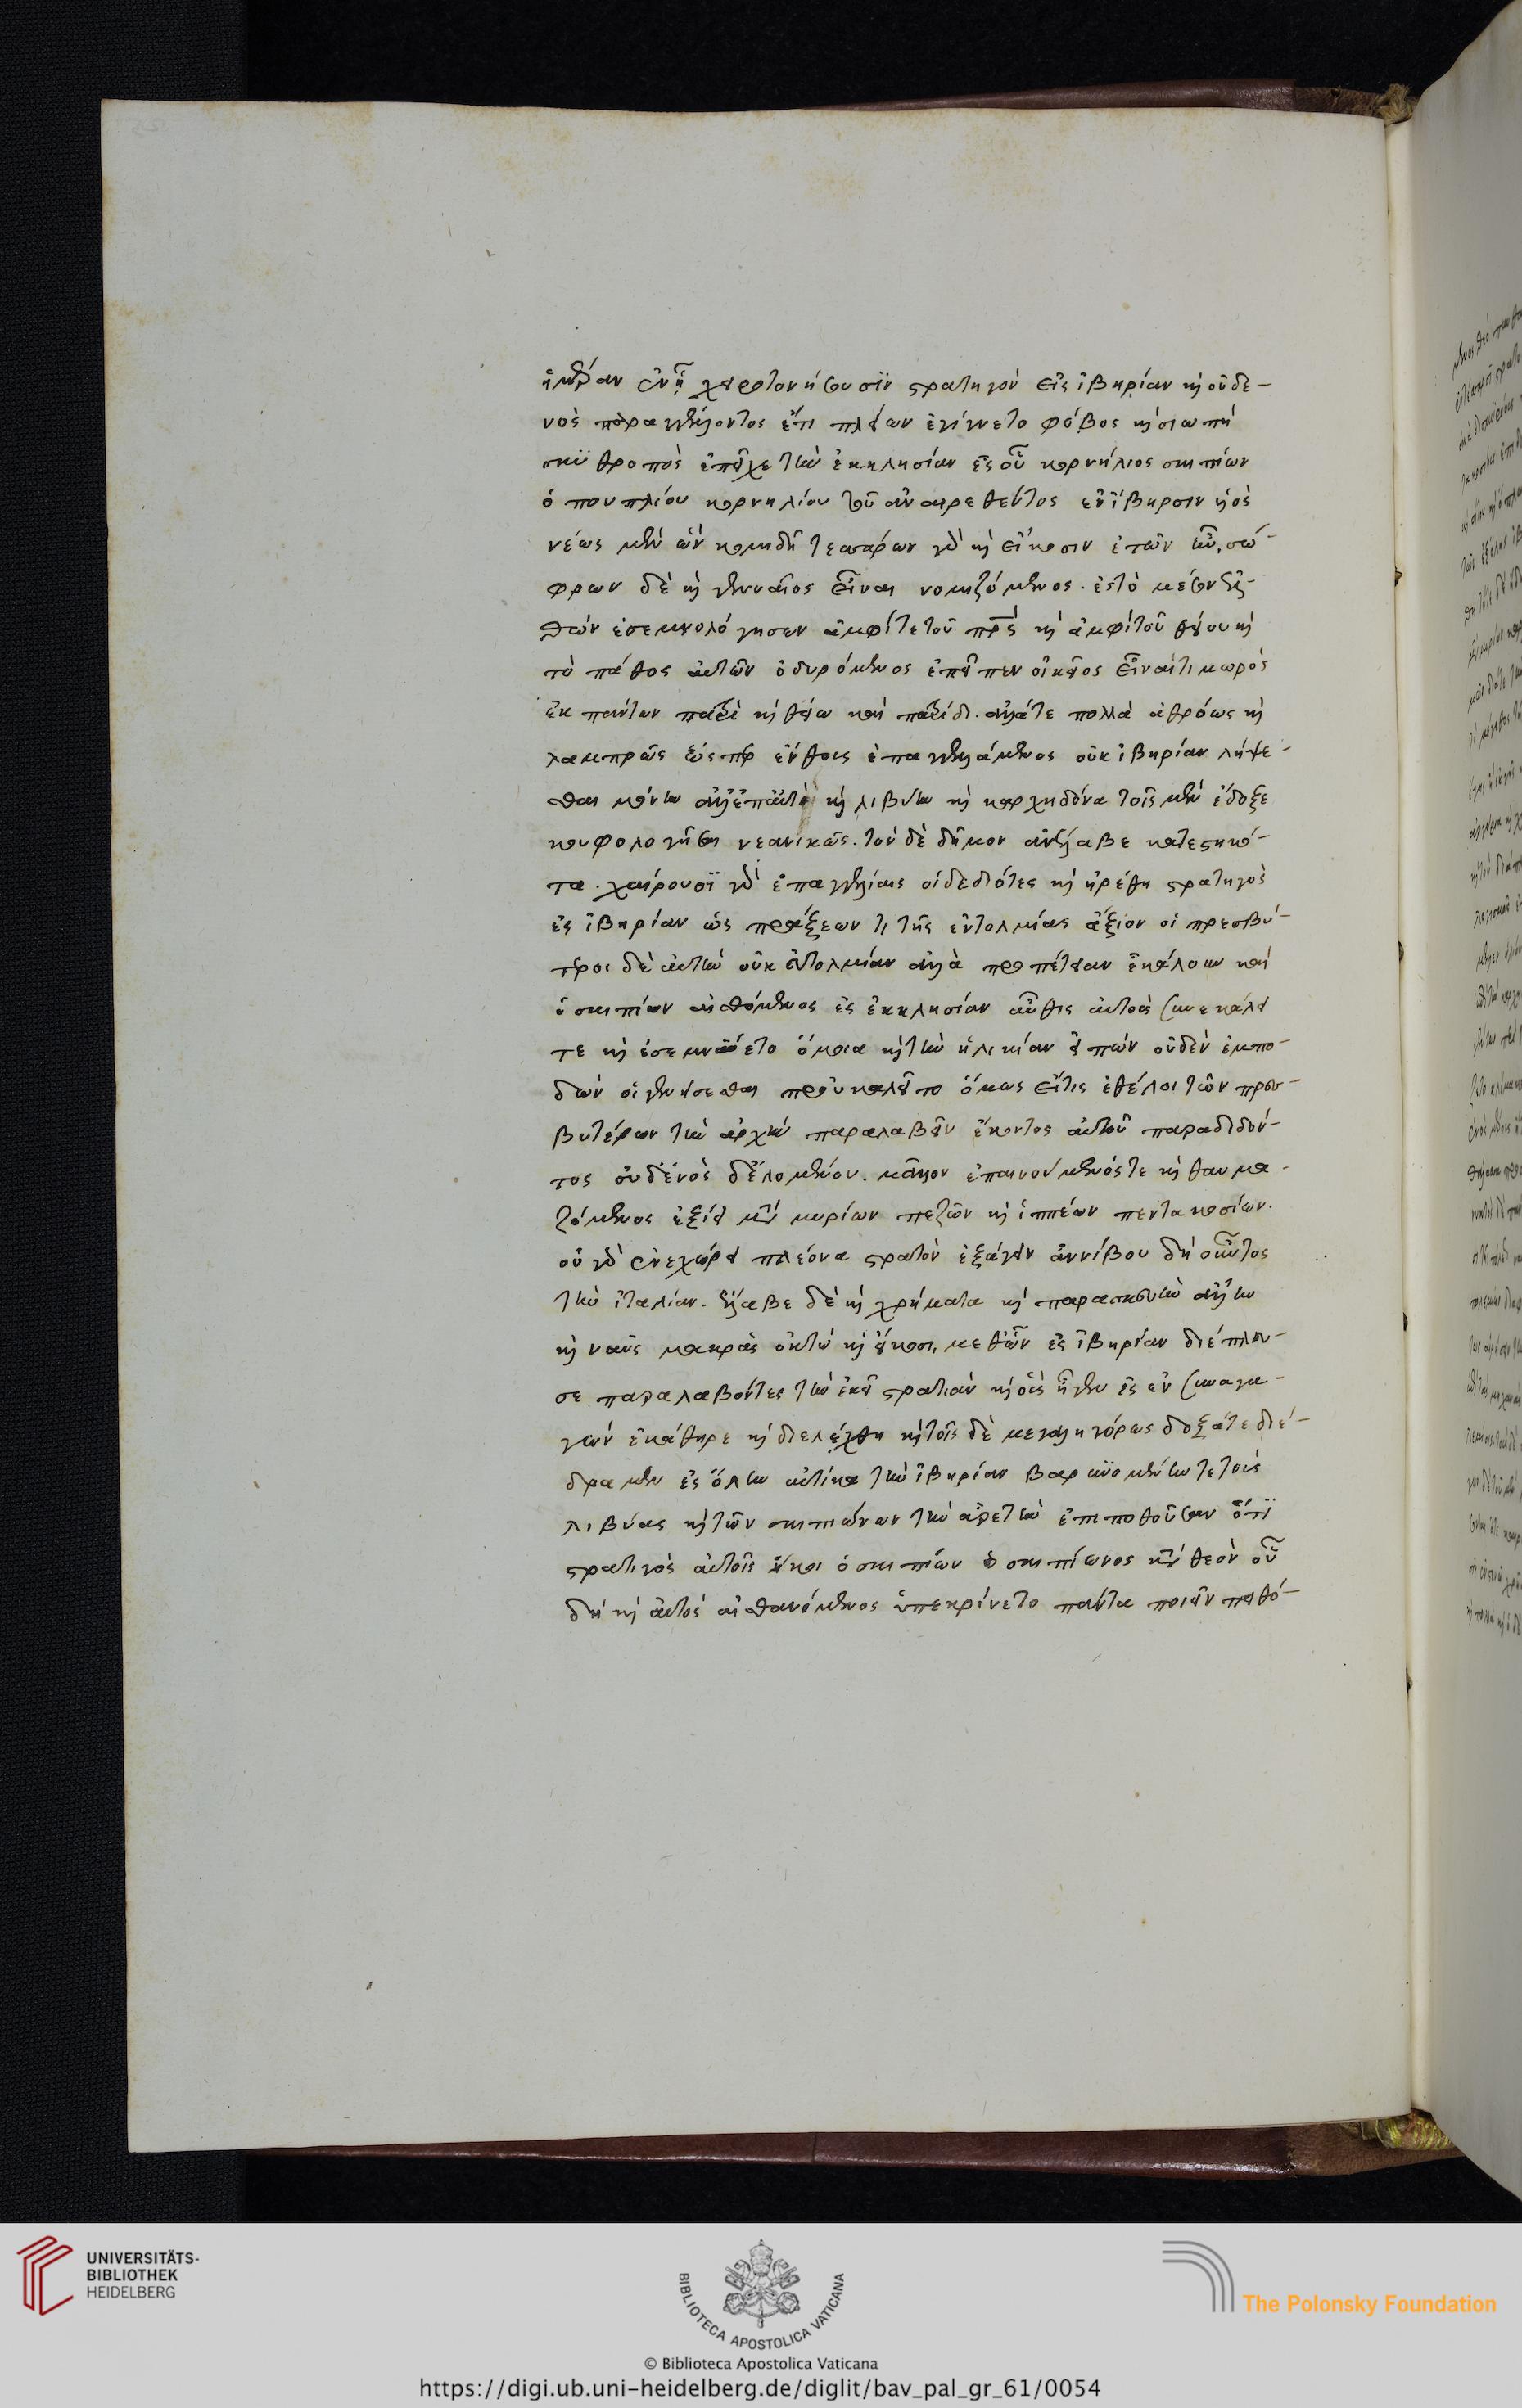 ἡμέραν ἐν ᾗ χειροτονήσουσϊν στρατηγὸν εἰς ἰβηρίαν καὶ οὐδε-
νὸς παραγγέλλοντος ἔτι πλείων ἐγίγνετο φόβος καὶ σιωπὴ
σκϋθροπὸς ἐπεῖχε τὴν ἐκκλησίαν ἐς οὗ κορνήλιος σκιπίων
ὁ πουπλίου κορνηλίου τοῦ ἀναιρεθέντος ἐν ἴβηρσιν υἱὸς
νέως μὲν ὢν κομιδῆ τεσσάρων γὰρ καὶ εἴκοσιν ἐτῶν ἦν, σώ-
φρων δὲ καὶ γενναῖος εἶναι νομιζόμενος. ἐς τὸ μέσον ἐλ-
θὼν ἐσεμνολόγησεν ἀμφί τε τοῦ πρς καὶ ἀμφὶ τοῦ θείου καὶ
τὸ πάθος αὐτῶν ὀδυρόμενος ἐπεῖπεν οἰκεῖος εἶναι τιμωρὸς
ἐκ πάντων πατρὶ καὶ θείω καὶ πατρίδι. ἄλλά τε πολλὰ ἀθρόως καὶ
λαμπρῶς ὥσπερ ἔνθους ἐπαγγειλάμενος οὐκ ἰβηρίαν λήψε-
σθαι μόνην ἀλλ' ἐπ' αὐτῇ καὶ λιβύην καὶ καρχηδόνα τοῖς μὲν ἔδοξε
κουφολογῆσαι νεανικῶς. τὸν δὲ δῆμον ἀνέλαβε κατεπτηχό-
τα. χαίρουσϊ γὰρ ἐπαγγελίαις οἱ δεδιότες καὶ ἡρέθη στρατηγὸς
ἐς ἰβηρίαν ὡς πράξεων τι τῆς εὐτολμίας ἄξιον οἱ πρεσβύ-
τεροι δὲ αὐτὴν οὐκ εὐτολμίαν ἀλλὰ προπέτειαν ἐκάλουν καὶ
ὁ σκιπίων αἰσθόμενος ἐς ἐκκλησίαν αὖθις αὐτοὺς συνεκάλει
τε καὶ ἐσεμνύετο ὅμοια καὶ τὴν ἡλικίαν εἰπὼν οὐδὲν ἐμπο-
δὼν οἱ γενήσεσθαι προὐκαλεῖτο ὅμως εἴ τις ἐθέλοι τῶν πρεσ-
βυτέρων τὴν ἀρχὴν παραλαβεῖν ἑκόντος αὐτοῦ παραδιδόν-
τος οὐδενὸς δ' ἑλομένου. μᾶλλον ἐπαινούμενός τε καὶ θαυμα-
ζόμενος ἐξίει μετὰ μυρίων πεζῶν καὶ ἱππέων πεντακοσίων.
οὐ γὰρ ἐνεχώρει πλέονα στρατὸν ἐξάγειν ἀννίβου δηοῦντος
τὴν ἰταλίαν. ἔλαβε δὲ καὶ χρήματα καὶ παρασκευὴν ἄλλην
καὶ ναῦς μακρὰς ὀκτὼ καὶ εἴκοσι, μεθ' ὧν ἐς ἰβηρίαν διέπλευ-
σε παραλαβόντες τὴν ἐκεῖ στρατιὰν καὶ οὓς ἦγεν ἐς ἓν συναγα-
γὼν ἐκάθηρε καὶ διελέχθη καὶ τοῖς δὲ μεγαληγόρως δόξά τε διέ-
δραμεν ἐς ὅλην αὐτίκα τὴν ἰβηρίαν βαρϋνομένην τε τοὺς
λιβύας καὶ τῶν σκιπιώνων τὴν ἀρετὴν ἐπιποθοῦσαν ὅτϊ
στρατηγὸς αὐτοῖς ἥκοι ὁ σκιπίων ὁ σκιπίωνος κατὰ θεὸν οὗ
δὴ καὶ αὐτὸς αἰσθανόμενος ὑπεκρίνετο πάντα ποιεῖν πειθό-
UNIVERSITÄTS-
BIBLIOTHEK
HEIDELBERG
BIBLIOTECA APOSTOLICA VATICANA
The Polonsky Foundation
© Biblioteca Apostolica Vaticana
https://digi.ub.uni-heidelberg.de/diglit/bav_pal_gr_61/0054